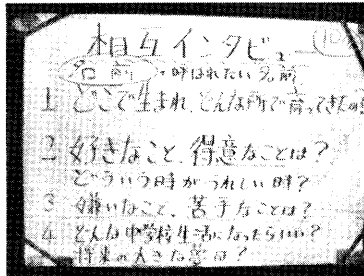 相互インタビュー
名前・呼ばれたい名前
1 どこで生まれ、どんな所で育ってきたの
2 好きなこと、得意なことは?
どういう時がうれしい時?
3 嫌いなこと、苦手なことは?
4 どんな中学校生活になったらいい?
将来の大きな夢は?